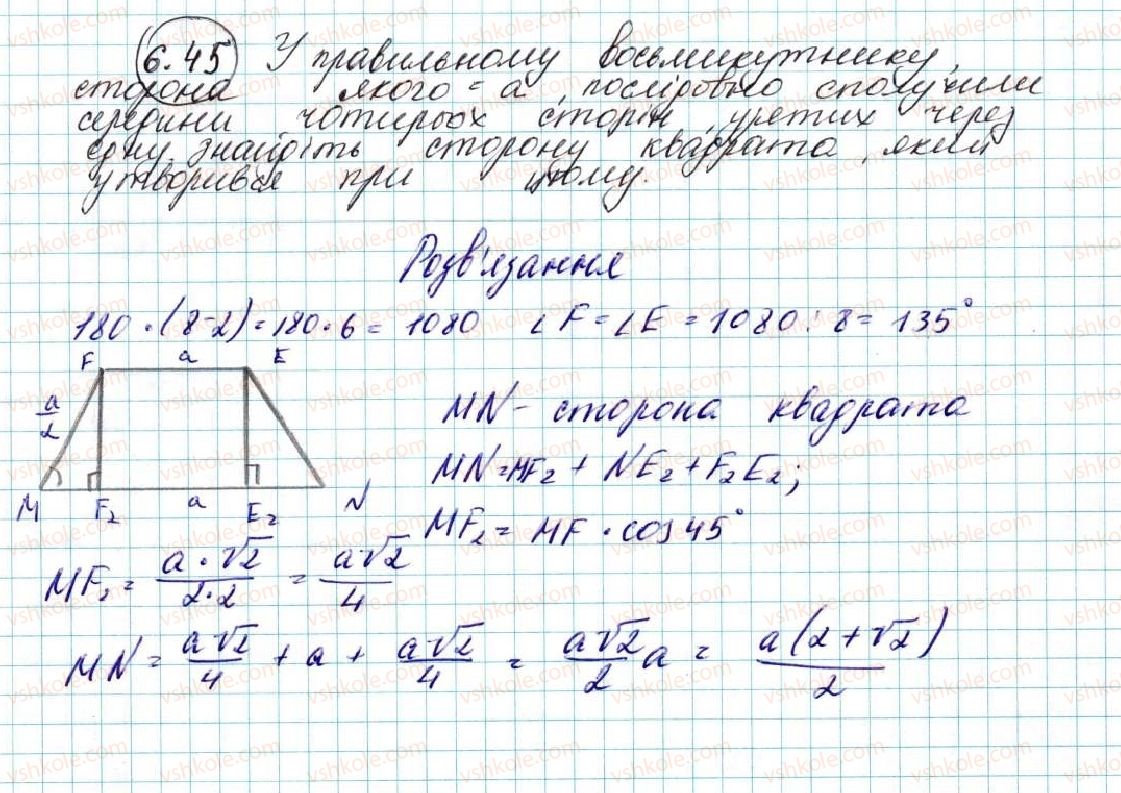 6.45 У правильному восьмикутнику,
сторона якого = a, послідовно сполучили
середини чотирьох сторін, узятих через
одну. знайдіть сторону квадрата, який
утворився при цьому.
Розв'язання
180 · (8-2) = 180 · 6 = 1080 ∠F = ∠E = 1080 : 8 = 135°
F a E
a/2
M F₂ a E₂ N
MN - сторона квадрата
MN = MF₂ + NE₂ + F₂E₂;
MF₂ = MF · cos 45°
MF₂ = a·√2/2·2 = a√2/4
MN = a√2/4 + a + a√2/4 = a√2/2 a = a(2+√2)/2
vshkole.com